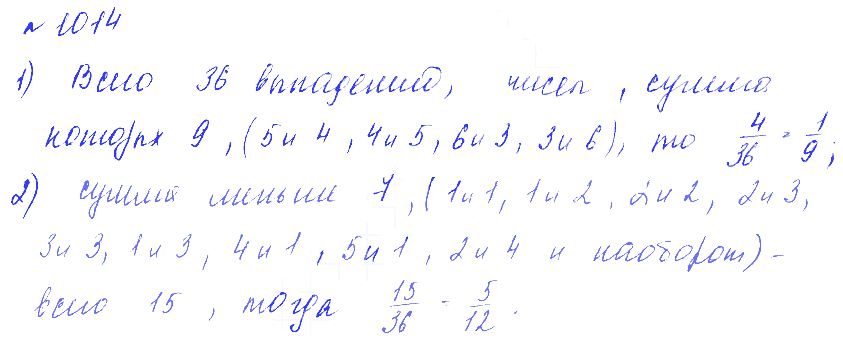 № 1014
1) Всего 36 выпадений, чисел, сумма
которых 9, (5 и 4, 4 и 5, 6 и 3, 3 и 6), то 4/36 = 1/9;
2) сумма меньше 7, (1 и 1, 1 и 2, 2 и 2, 2 и 3,
3 и 3, 1 и 3, 4 и 1, 5 и 1, 2 и 4 и наоборот) -
всего 15, тогда 15/36 = 5/12.